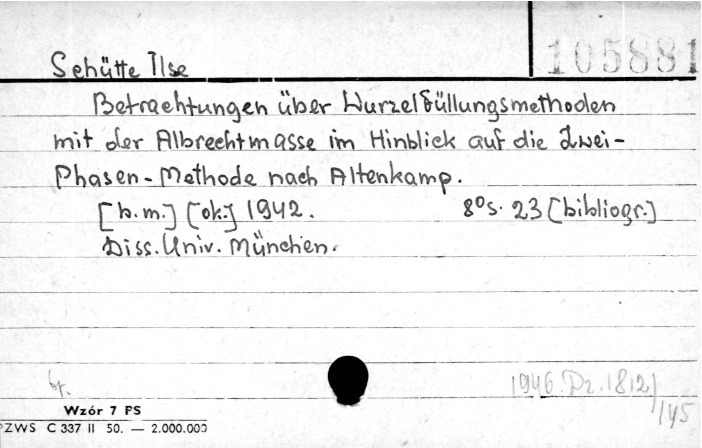 105881
Schütte Ilse
Betrachtungen über Wurzelfüllungsmethoden
mit der Albrechtmasse im Hinblick auf die Zwei-
Phasen-Methode nach Altenkamp.
[b.m.] [ok.] 1942. 8⁰ s. 23 [bibliogr.]
Diss. Univ. München.
1946.Dz.1812/
/145
Wzór 7 PS
PZWS C 337 II 50. — 2.000.000